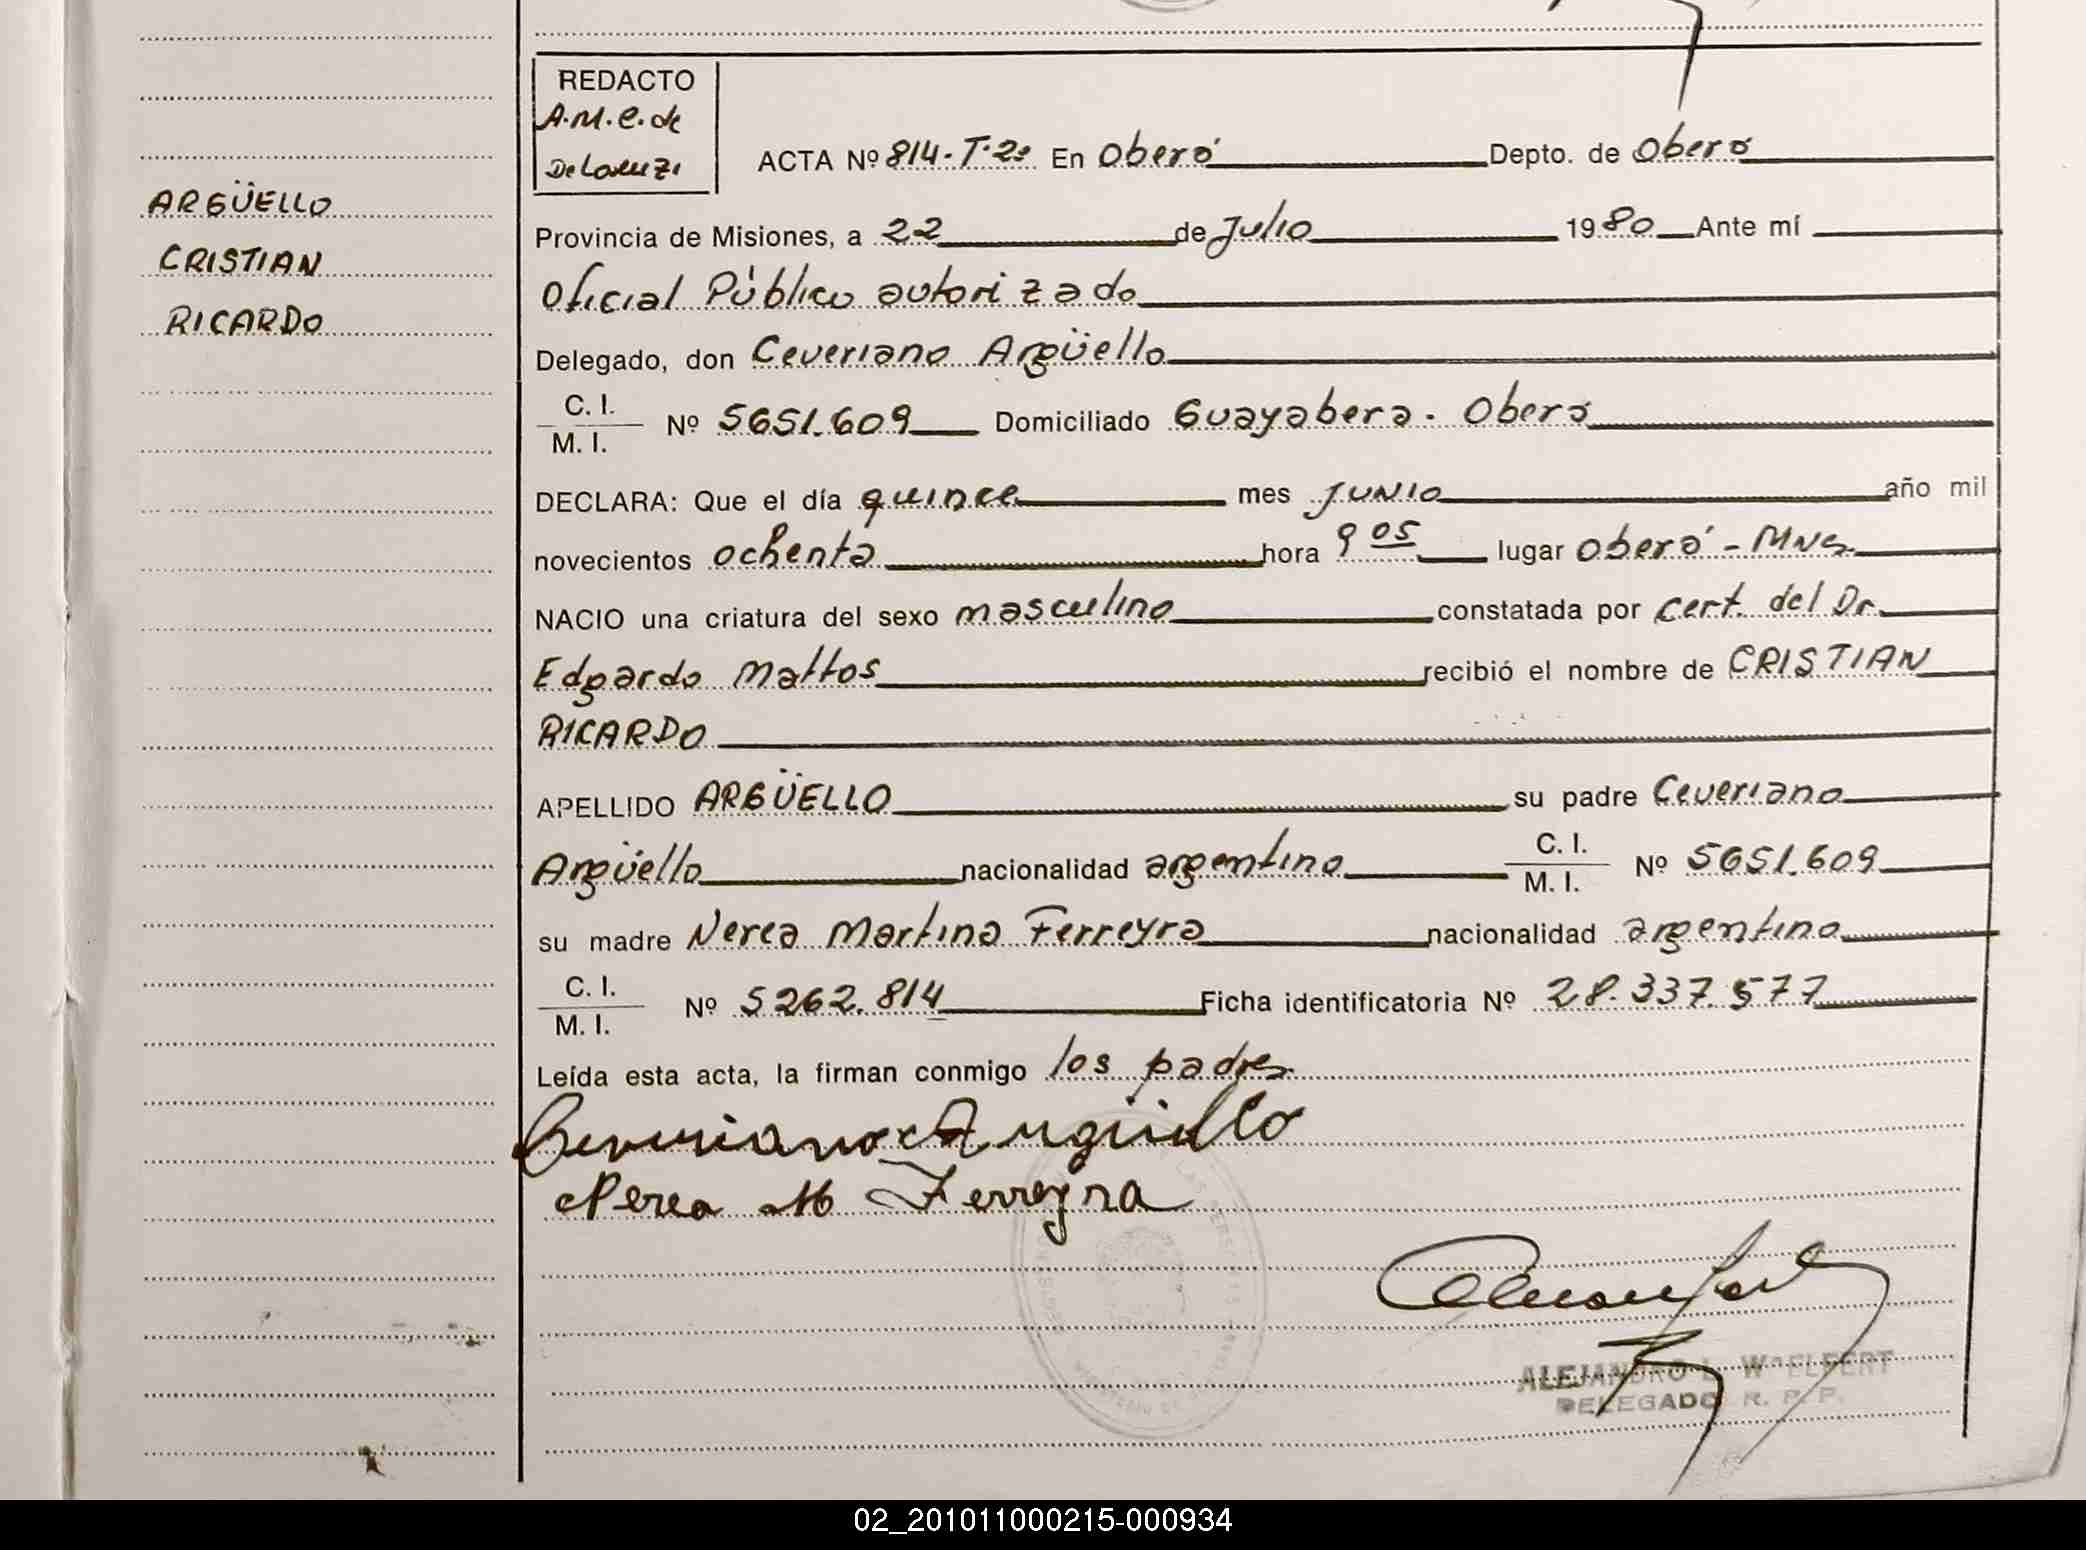 REDACTO
A.M.C. de
De Lorenzi
ACTA Nº 814-T-2º En Oberá Depto. de Oberá
ARGÜELLO
CRISTIAN
RICARDO
Provincia de Misiones, a 22 de Julio 1980 Ante mí
Oficial Público autorizado
Delegado, don Ceveriano Argüello
C. I.
M. I. Nº 5651.609 Domiciliado Guayabera - Oberá
DECLARA: Que el día quince mes JUNIO año mil
novecientos ochenta hora 9 05 lugar Oberá - Mnes
NACIO una criatura del sexo masculino constatada por cert. del Dr.
Edgardo Mattos recibió el nombre de CRISTIAN
RICARDO
APELLIDO ARGÜELLO su padre Ceveriano
Argüello nacionalidad argentina C. I.
M. I. Nº 5651.609
su madre Nerea Martina Ferreyra nacionalidad argentina
C. I.
M. I. Nº 5262.814 Ficha identificatoria Nº 28.337.577
Leída esta acta, la firman conmigo los padres
Ceveriano Argüello
Nerea M Ferreyra
ALEJANDRO L.
DELEGADO R. P. P.
02_201011000215-000934